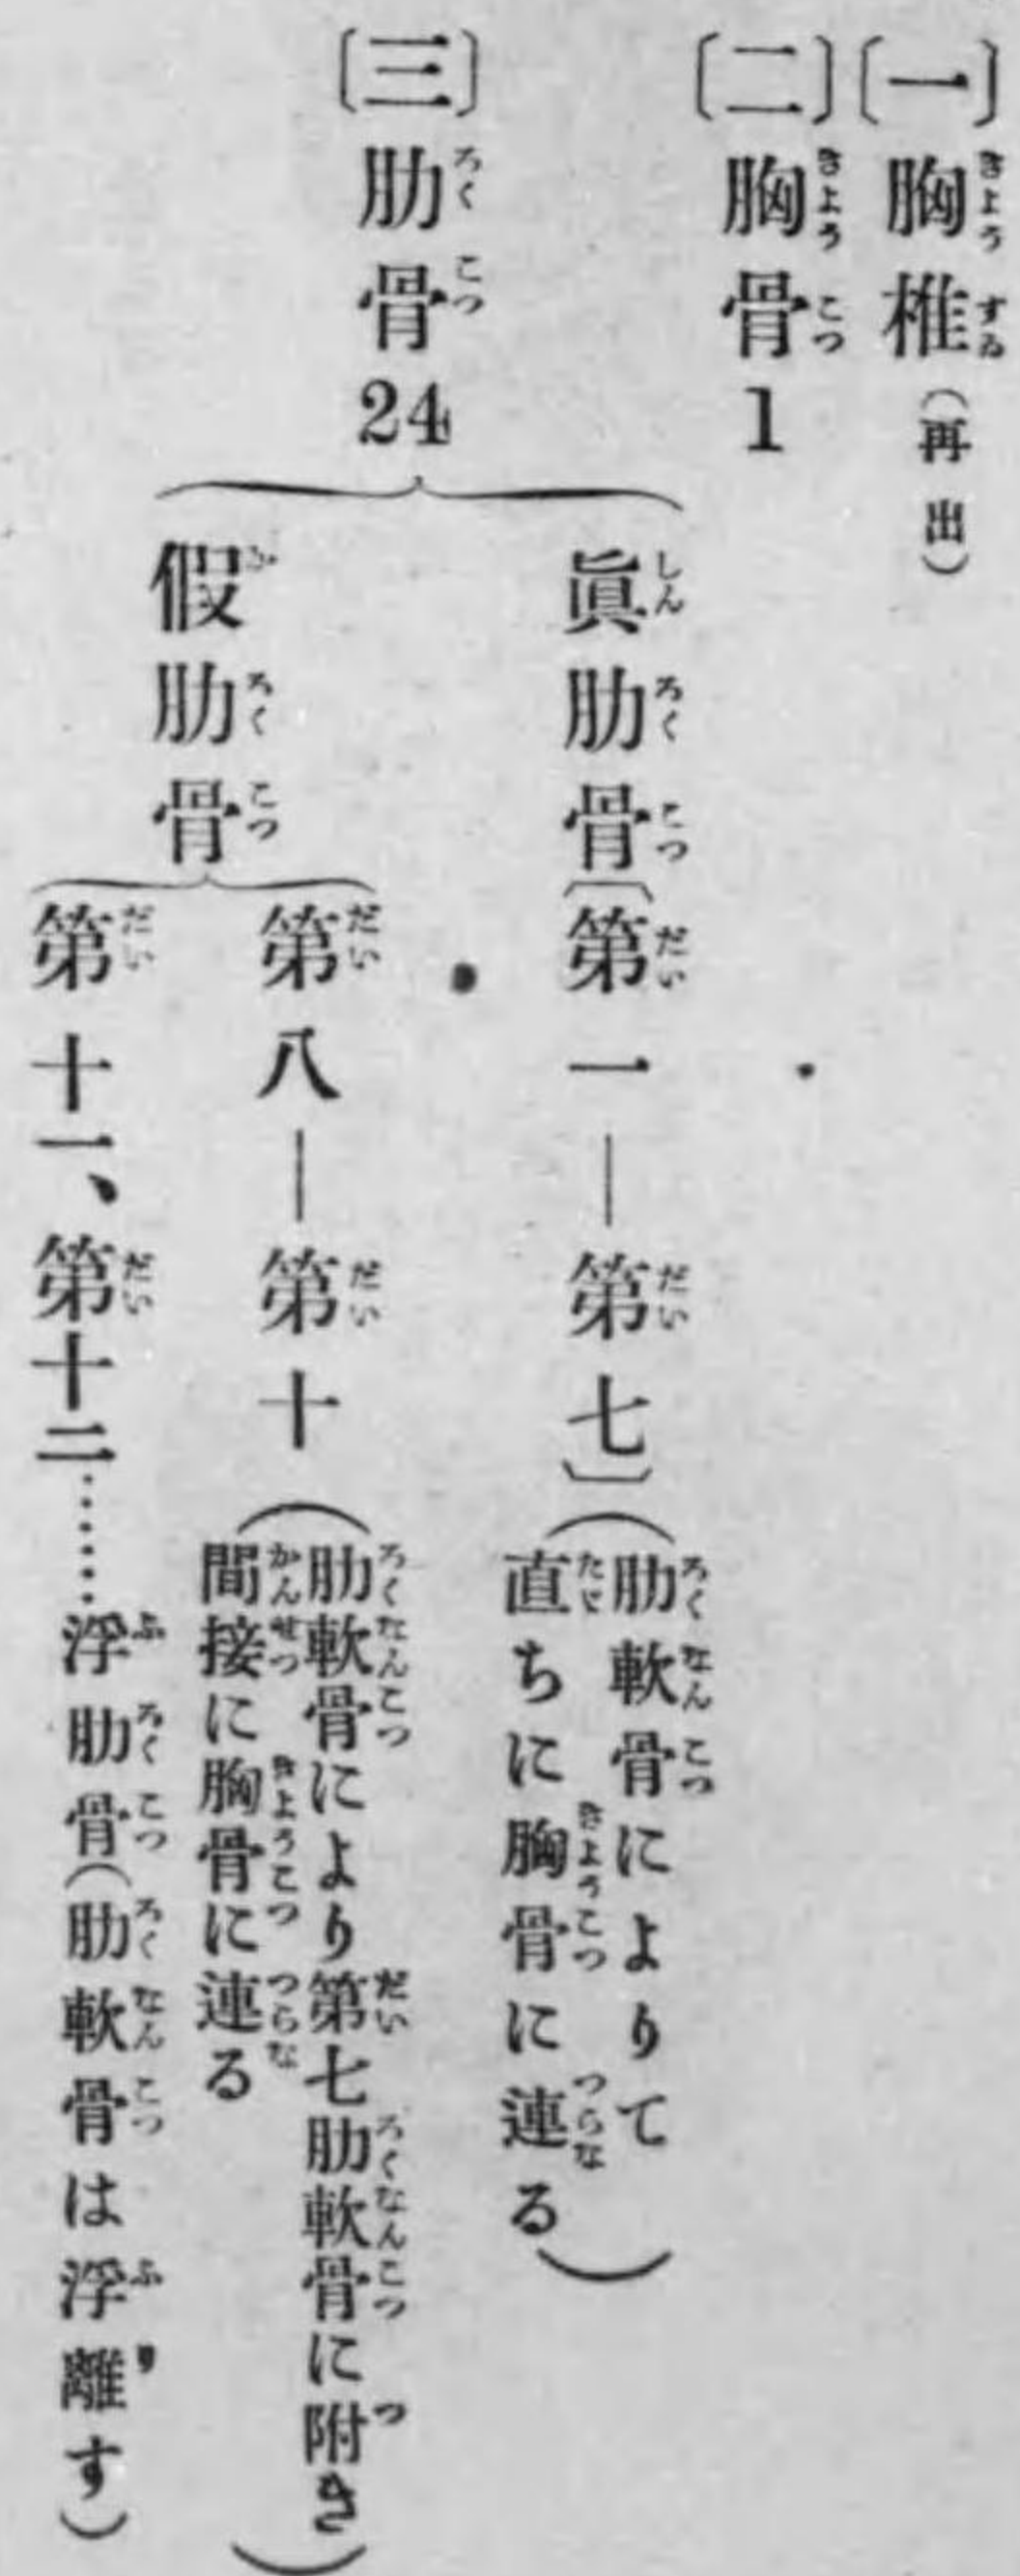 〔一〕胸椎（再出）
〔二〕胸骨1
〔三〕肋骨24
眞肋骨〔第一—第七〕
（肋軟骨によりて
直ちに胸骨に連る）
假肋骨
第八—第十
（肋軟骨により第七肋軟骨に附き
間接に胸骨に連る）
第十一、第十二……浮肋骨（肋軟骨は浮離す）